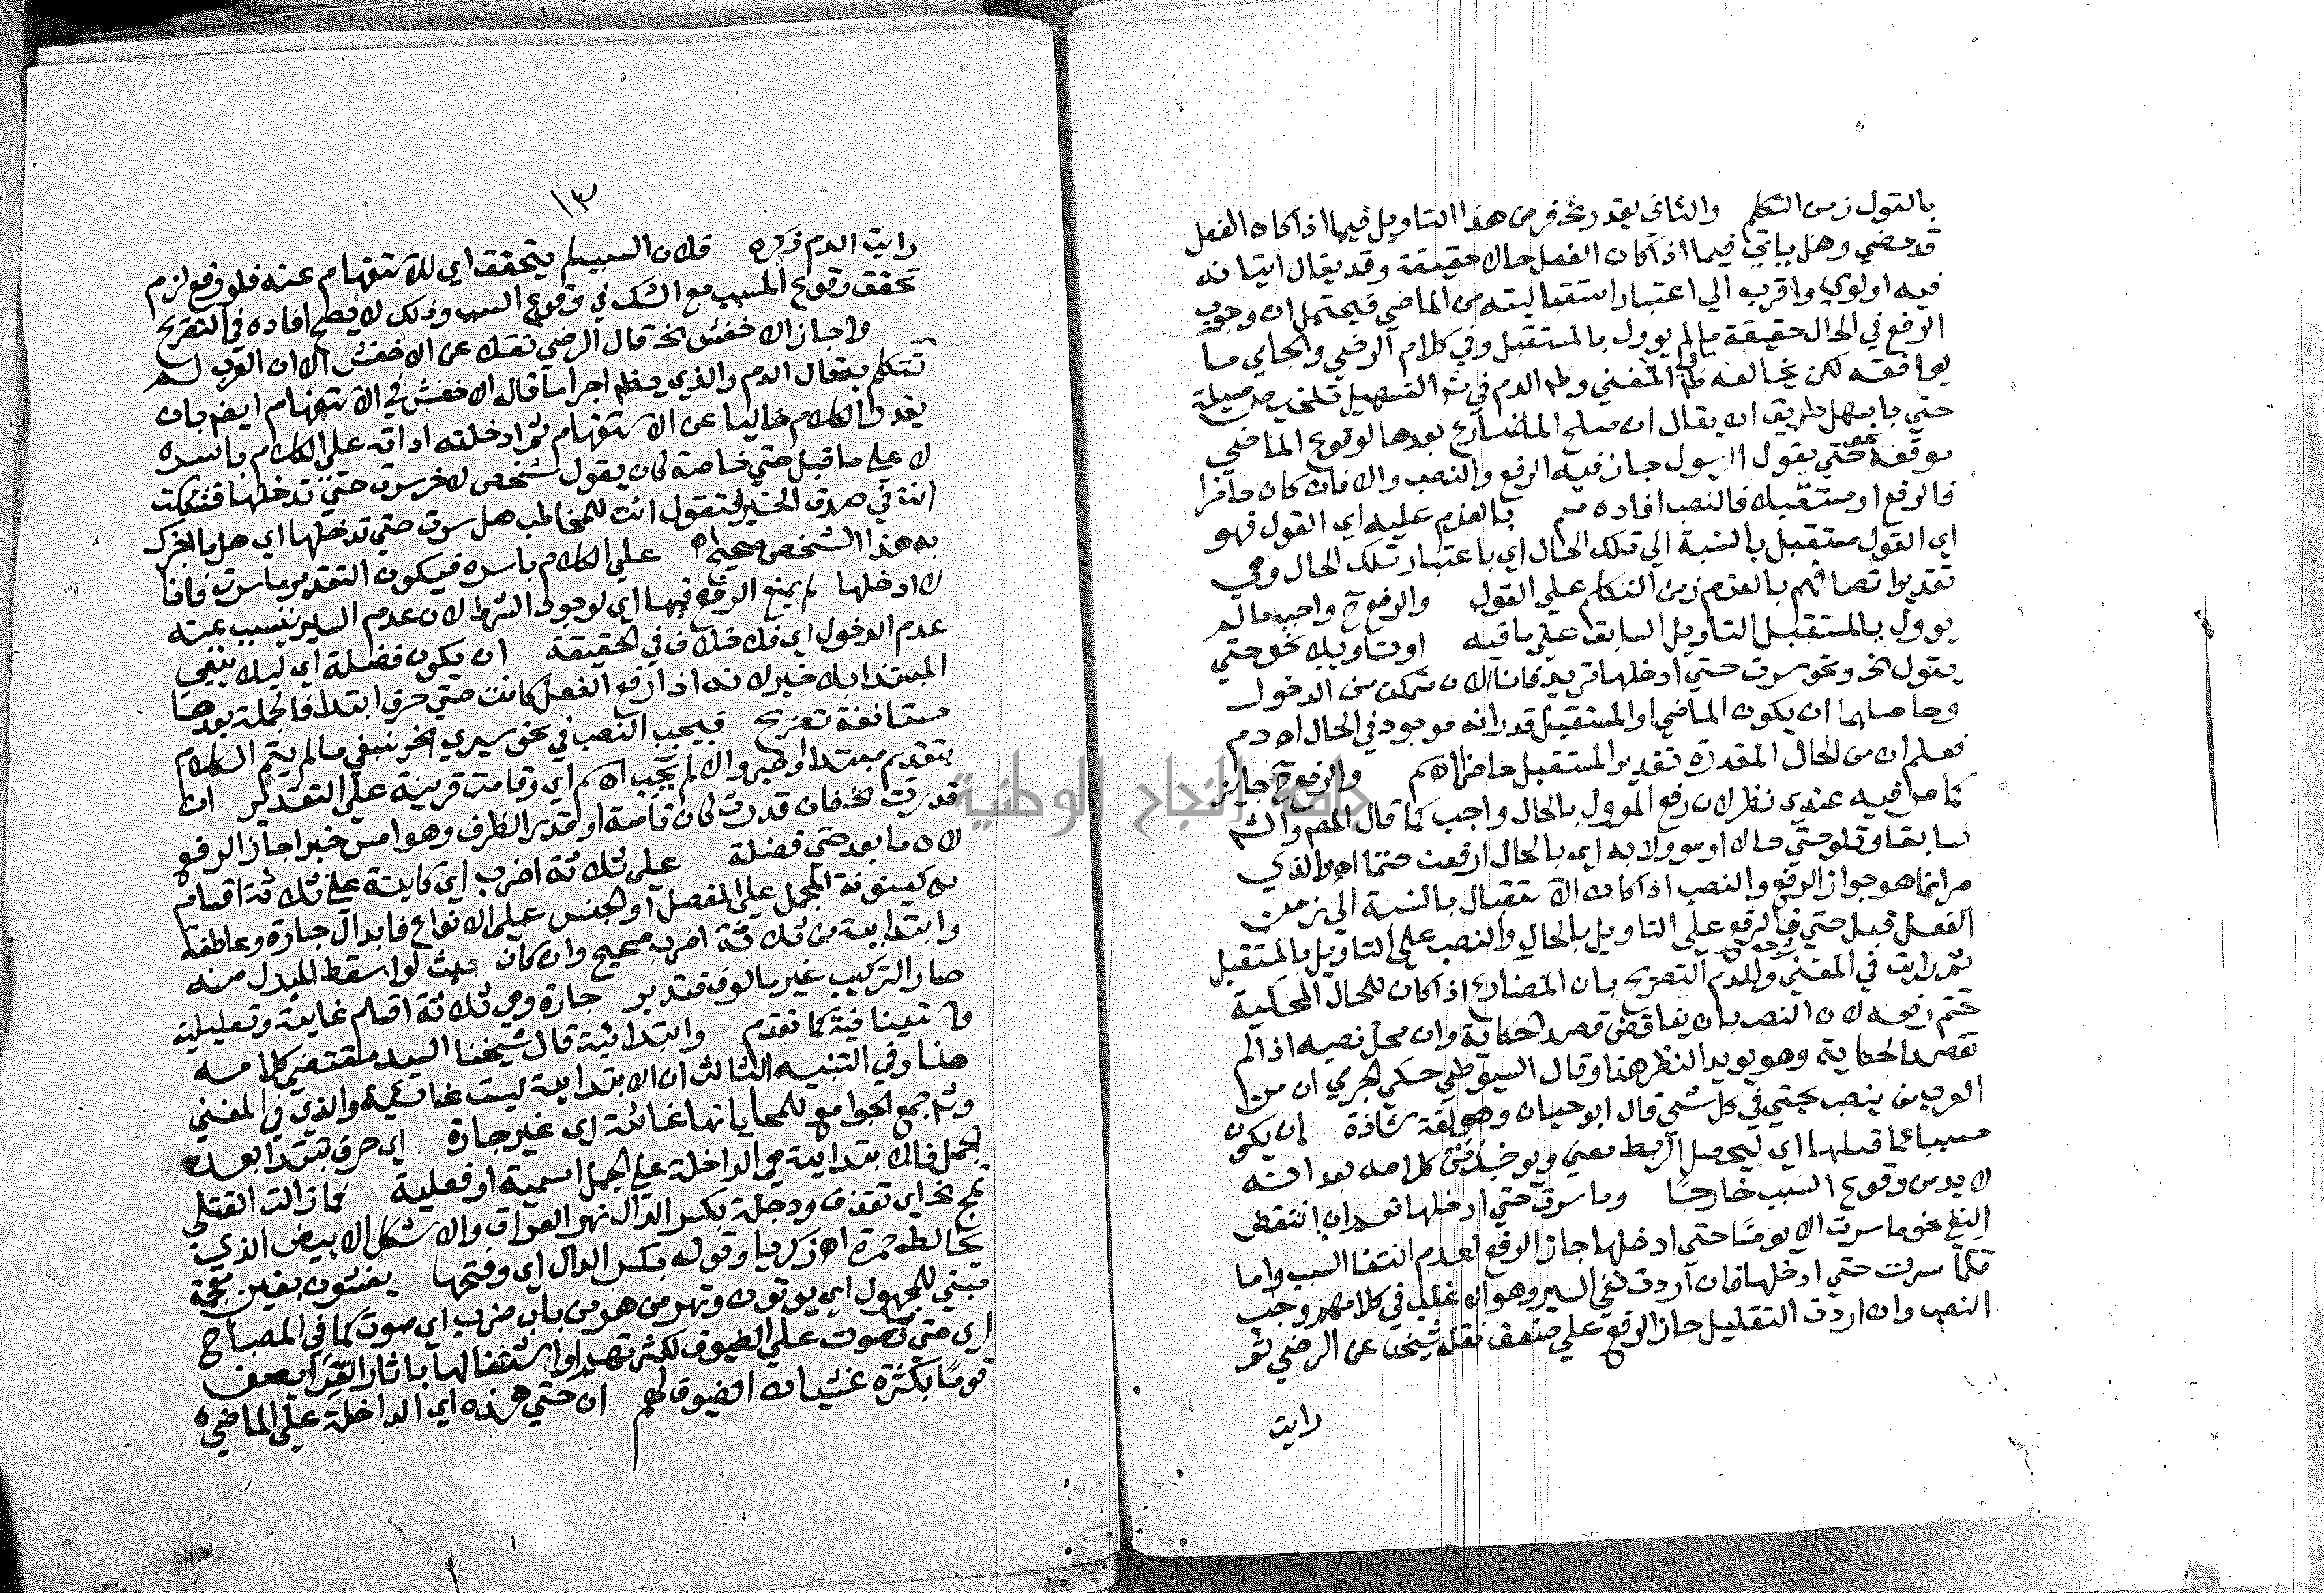 بالقول زمن التكلم والثاني يقدر نحو فرض هذا التاويل فيما اذا كان الفعل
قد مضي وهل ياتي فيما اذا كان الفعل حالا حقيقة وقد يقال اتيانه
فيه اولوي واقرب الي اعتبار استقباليته من الماضي فيحتمل ان وجوب
الرفع في الحال حقيقة ما لم يوول بالمستقبل وفي كلام الرضي والجامي ما
يوافقه لكن يخالفه ظم المغني وظم الدم في ش التسهيل تلخيص مسيلة
حتي بابهل طريق ان يقال ان صلح المضارع بعدها لوقوع الماضي
موقعه نحو حتي يقول الرسول جاز فيه الرفع والنصب والا فان كان حاضرا
فالرفع او مستقبلا فالنصب افاده سم بالعزم عليه اي القول فهو
اي القول مستقبل بالنسبة الي تلك الحال اي باعتبار تلك الحال وهي
تقدير اتصافهم بالعزم زمن التكلم علي القول والرفع ح واجب ما لم
يوول بالمستقبل التاويل السابق علي ما فيه او بتاويل نحو حتي
يقول الخ ونحو سرت حتي ادخلها تريد فانا الان متمكن من الدخول
وحاصلهما ان يكون الماضي او المستقبل قدر انه موجود في الحال اه دم
فعلم ان من الحال المقدرة تقدير المستقبل حاضرا اه سم والرفع ح جايز
كما مر فيه عندي نظر لان رفع الموول بالحال واجب كما قال المصم والش
سابقا وتلو حتي حالا او موولا به اي بالحال ارفعن حتما اه والذي
مر انما هو جواز الرفع والنصب اذا كان الاستقبال بالنسبة الي زمن
الفعل قبل حتي فالرفع علي التاويل بالحال والنصب علي التاويل بالمستقبل
ثم رايت في المغني وشرحه للدم التصريح بان المضارع اذا كان للحال المحكية
تحتم رفعه لان النصب بان يناقض قصد الحكاية وان محل نصبه اذا لم
تقصد الحكاية وهو يويد النظر هذا وقال السيوطي حكي الجرمي ان من
العرب من ينصب بحتي في كل شي قال ابو حيان وهو لغة شاذة ان يكون
مسببا عما قبلها اي ليحصل الربط معني ويوخذ من كلامه بعد انه
لا بد من وقوع السبب خارجا وما سرت حتي ادخلها نعم ان انتقض
النفي نحو ما سرت الا يوما حتي ادخلها جاز الرفع لعدم انتفا السبب واما
قلما سرت حتي ادخلها فان اردت نفي السير وهو الاغلب في كلامهم وجب
النصب وان اردت التقليل جاز الرفع علي ضعف نقله شيخنا عن الرضي ثم
رايت
١٣
رايت الدم ذكره فلان السبب لم يتحقق اي للاستفهام عنه فلو رفع لزم
تحقق وقوع المسبب مع الشك في وقوع السبب وذلك لا يصح افاده في التصريح
واجاز الاخفش الخ قال الرضي نقلا عن الاخفش الا ان العرب لم
تتكلم به قال الدم والذي يظهر اجرا ما قاله الاخفش في الاستفهام ايضا بان
يقدر الكلام خاليا عن الاستفهام ثم ادخلته اداته علي الكلام باسره
لا علي ما قبل حتي خاصة كان يقول شخص لاخر سرت حتي تدخلها فشككت
انت في صدق الخبر فتقول انت للمخاطب هل سرت حتي تدخلها اي هل ما اخبرك
به هذا الشخص صحيح اه علي الكلام باسره فيكون التقدير ما سرت فانا
لا ادخلها لم يمنع الرفع فيها اي لوجود الشرط لان عدم السير يتسبب عنه
عدم الدخول اي فلا خلاف في الحقيقة ان يكون فضلة اي ليلا يبقي
المبتدا بلا خبر لانه اذا رفع الفعل كانت حتي حرف ابتدا فالجملة بعدها
مستانفة تصريح فيجب النصب في نحو سيري الخ ينبغي ما لم يتم الكلام
بتقديم مبتدا او خبر والا لم يجب اه سم اي وقامت قرينة علي التقدير ان
قدرت الخ فان قدرت كان تامة او قدر الظرف وهو امس خبرا جاز الرفع
لان ما بعد حتي فضلة علي ثلاثة اضرب اي كاينة علي ثلاثة اقسام
من كينونة المجمل علي المفصل او الجنس علي الانواع فابدال جارة وعاطفة
وابتدايية من ثلاثة اضرب صحيح وان كان بحيث لو اسقط المبدل منه
صار التركيب غير مالوف فتدبر جارة وهي ثلاثة اقسام غايية وتعليلية
واستثنايية كما تقدم وابتدائية قال شيخنا السيد مقتضي كلامه
هنا وفي التنبيه الثالث ان الابتدايية ليست غائية والذي في المغني
وش جمع الجوامع للمحلي انها غائية اي غير جارة اي حرف تبتدا بعده
الجمل فالابتدايية هي الداخلة علي الجمل اسمية او فعلية فما زالت القتلي
تمج الخ اي تقذف ودجلة بكسر الدال نهر العراق والاشكل الابيض الذي
يخالطه حمرة اه زكريا وقوله بكسر الدال اي وفتحها يغشون بغين معجمة
مبني للمجهول اي يوتون وتهر من هر من باب ضرب اي صوت كما في المصباح
اي حتي تصوت علي الضيوف لكثرتهم او اشتغالها باثار القرا يصف
قوما بكثرة غشيان الضيوف لهم ان حتي هذه اي الداخلة علي الماضي
جامعة النجاح الوطنية